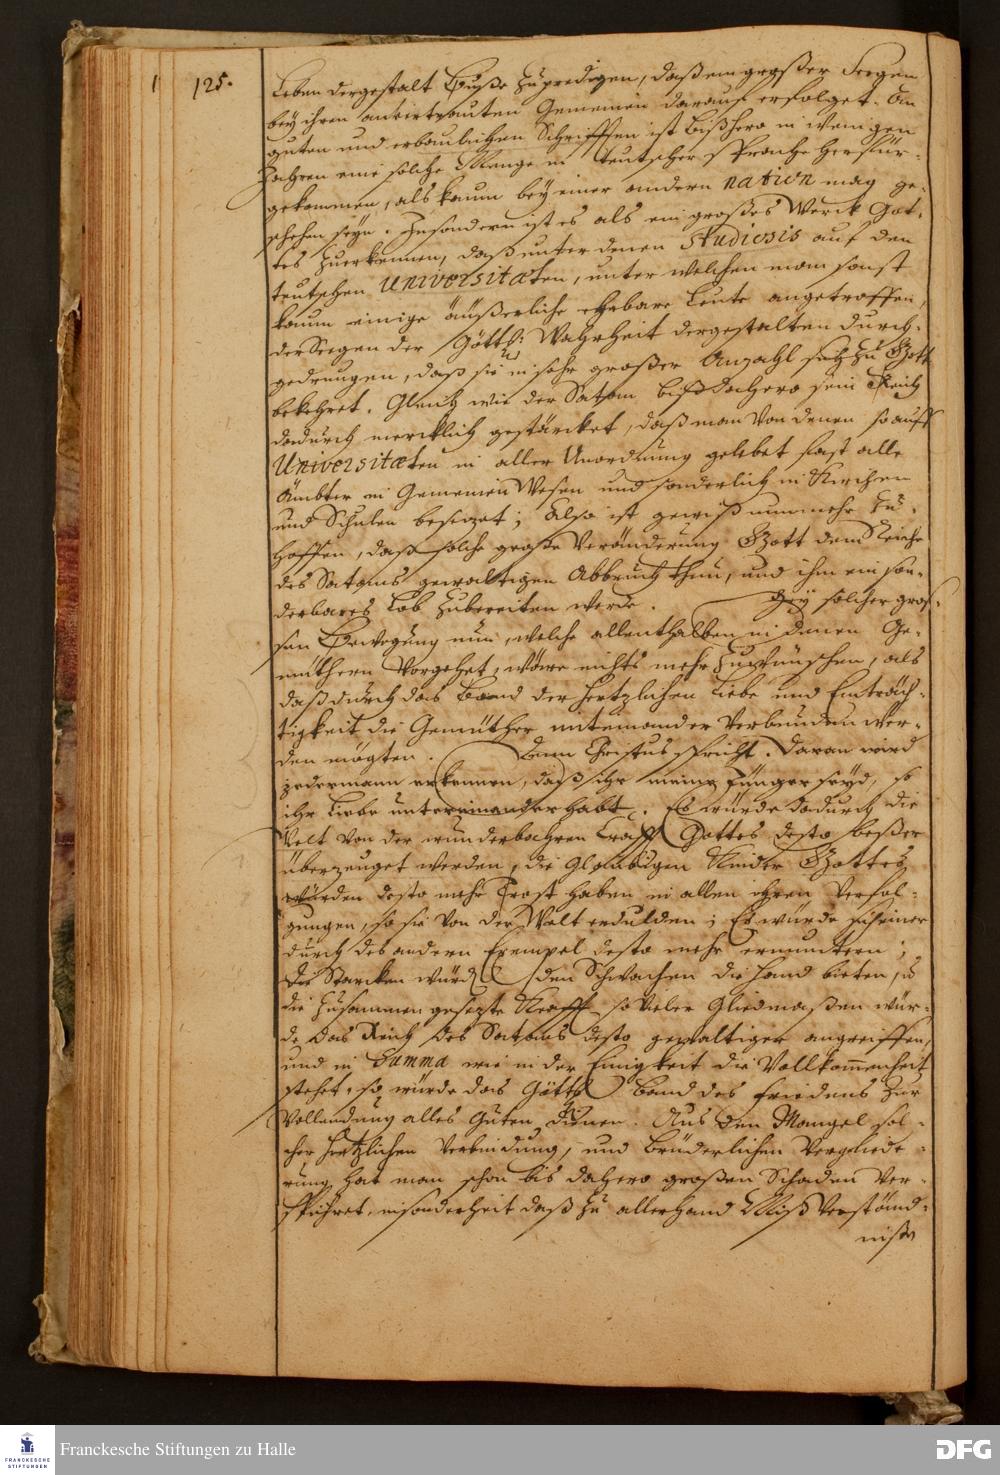 125.
Leben dergestalt Buße zu predigen, daß ein großer Seegen
bey ihren anvertrauten Gemeinen darauf erfolget. An
guten und erbaulichen Schrifften ist bißhero in wenigen
Jahren eine solche Menge in teutscher Sprache herfür-
gekommen, als kaum bey einer andern nation mag ge-
schehen seyn. Insonderheit ist es als ein großes Werck Got-
tes zuerkennen, daß unter denen Studiosis auf den
teutschen Universitæten, unter welchen man sonst
kaum einige äußerliche Ehrbare Leute angetroffen,
der Seegen der Göttl: Wahrheit dergestalten durch-
gedrungen, daß sie in sehr großer Anzahl sich zu Gott
bekehret. Gleich wie der Satan biß dahero sein Reich
dadurch mercklich gestärcket, daß man von denen so auff
Universitæten in aller Unordnung gelebet fast alle
Ämbter in Gemeinen Wesen und sonderlich in Kirchen
und Schulen besetzet; Also ist gewiß nunmehr zu
hoffen, daß solche große Veränderung Gott dem Reiche
des Satans gewaltigen Abbruch thun, und ihm ein son-
derbares Lob zubereiten werde. Bey solcher gros-
sen Bewegung nun, welche allenthalben in denen Ge-
müthern vorgehet, wäre nichts mehr zuwünschen, als
daß durch das Band der hertzlichen Liebe und Einträch-
tigkeit die Gemüther unteinander verbunden wer-
den mögten. Denn Christus spricht: Daran wird
jedermann erkennen, daß ihr meine Jünger seyd, so
ihr Liebe untereinander habt. Es würde dadurch die
Welt von der wunderbahren Krafft Gottes desto beßer
überzeuget werden, die Gläubigen Kinder Gottes
würden desto mehr Trost haben in allen ihren Verfol-
gungen, so sie von der Welt erdulden; Es würde sich einer
durch des andern Exempel desto mehr ermuntern;
Die Starcken würden den Schwachen die Hand bieten, u.
die zusammen gesetzte Krafft so vieler Gliedmaßen wür-
de das Reich des Satans desto gewaltiger angreiffen,
und in Summa wie in der Einigkeit die Vollkommenheit
stehet, so würde das Göttl. Band des Friedens zur
Vollendung alles Guten dienen. Aus dem Mangel sol-
cher hertzlichen Verbindung, und Brüderlichen Verglieder-
rung hat man schon bis dahero großen Schaden ver-
spühret, insonderheit daß zu allerhand Mißverständ-
niße
Franckesche Stiftungen zu Halle
FRANCKESCHE
STIFTUNGEN
DFG